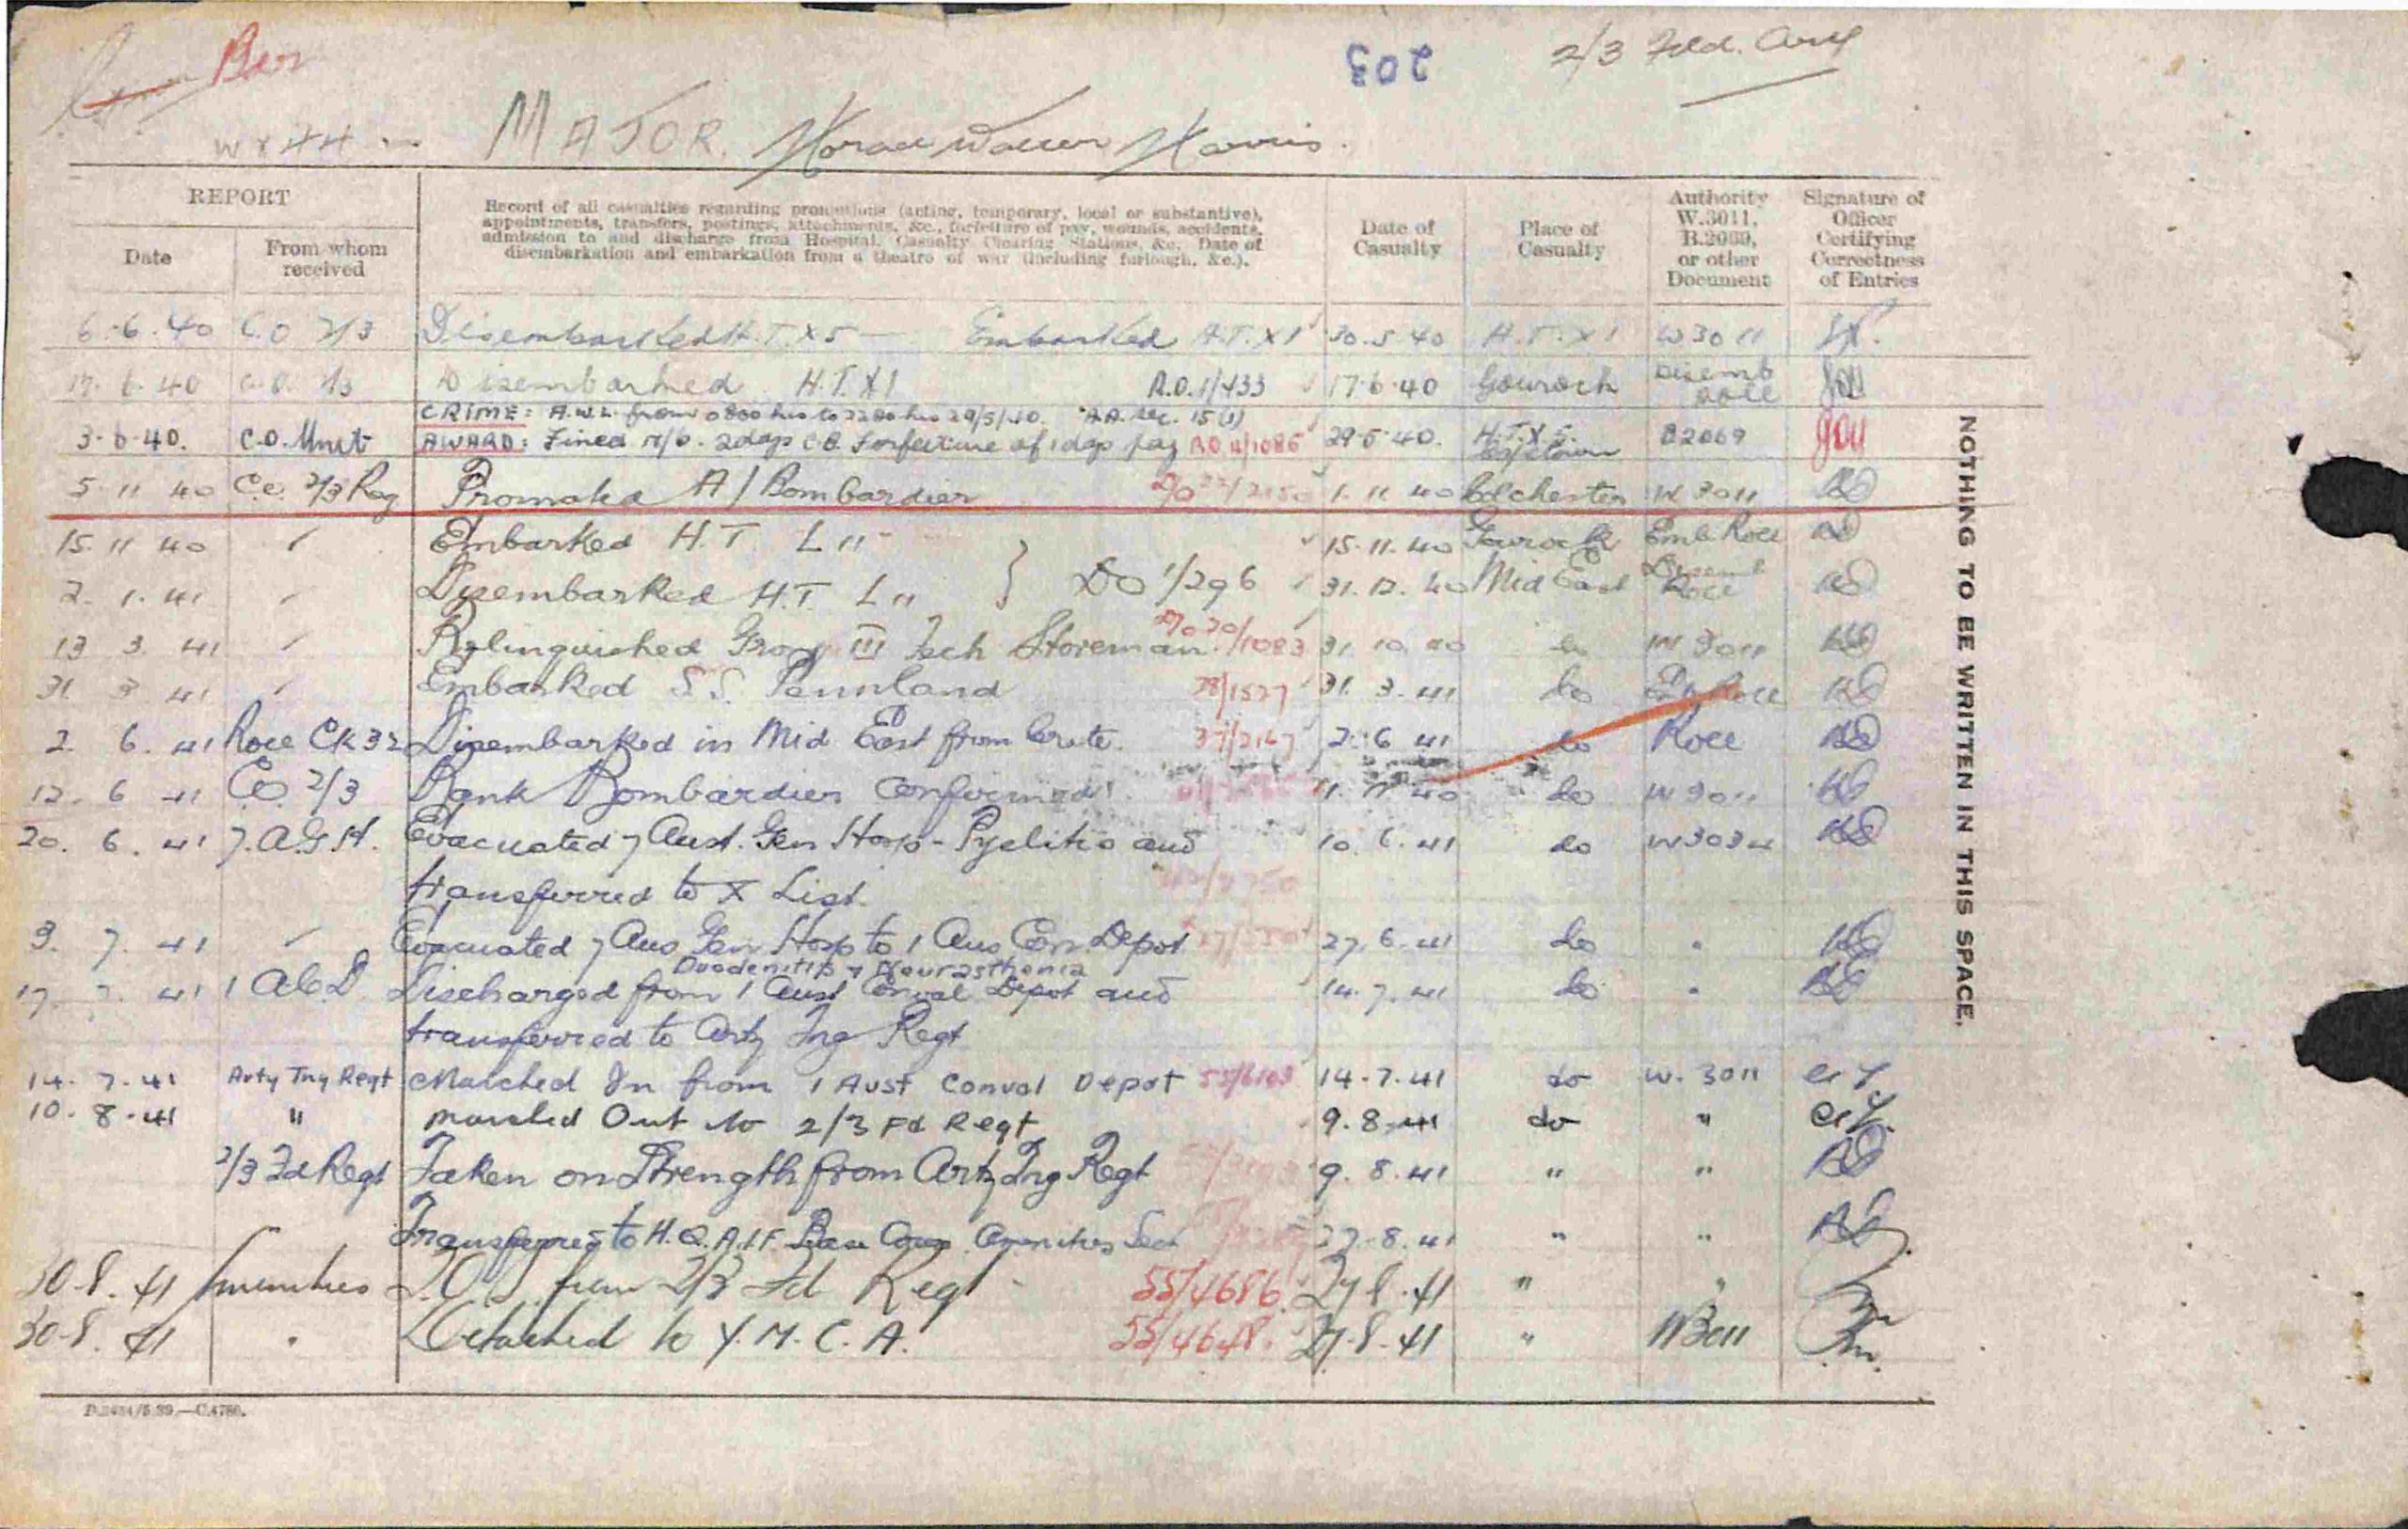 Bdr
203
2/3 Fld. Arty
WX44
MAJOR. Horace Walter Harris.
REPORT
Date
From whom received
Record of all casualties regarding promotions (acting, temporary, local or substantive), appointments, transfers, postings, attachments, &c., forfeiture of pay, wounds, accidents, admission to and discharge from Hospital, Casualty Clearing Stations, &c. Date of disembarkation and embarkation from a theatre of war (including furlough, &c.).
Date of Casualty
Place of Casualty
Authority W.3011, B.2069, or other Document
Signature of Officer Certifying Correctness of Entries
6.6.40 C.O 2/3 Disembarked H.T. X5 — Embarked H.T. X1 30.5.40 H.T. X1 W3011
17.6.40 C.O. 2/3 Disembarked H.T. X1 R.O.1/433 17.6.40 Gourock Disemb Roll
CRIME: A.W.L. from 0800 hrs to 2200 hrs 29/5/40. A.A. Sec. 15(1)
3.6.40. C.O. Unit AWARD: Fined 2 days C.B. Forfeiture of 1 days pay 29.5.40. H.T.X5. B2069
5 11 40 C.O. 2/3 Reg Promoted A/Bombardier 1.11.40 Colchester W3011
15.11.40 Embarked H.T. L11 15.11.40 Gourock Emb. Roll
2.1.41 Disembarked H.T. L11 } DO 1/296 31.12.40 Mid East Disemb Roll
13 3 41 Relinquished Group III Tech Storeman 20/1083 31 10 40 do W3011
31 3 41 Embarked S.S. Pennland 28/1527 31.3.41 do Roll
2 6 41 Roll CK32 Disembarked in Mid East from Crete. 37/2147 2.6.41 do Roll
12.6.41 C.O. 2/3 Rank Bombardier Confirmed 40 do W3011
20.6.41 7.A.G.H. Evacuated 7 Aust. Gen Hosp - Pyelitis and 10.6.41 do W3034
transferred to X List.
3.7.41 Evacuated 7 Aus Gen Hosp to 1 Aus Con. Depot 27.6.41 do "
Duodenitis & Neurasthenia
17.7.41 1 A.C.D. Discharged from 1 Aust Conval Depot and 14.7.41 do "
transferred to Arty Tng Regt
14.7.41 Arty Tng Regt Marched In from 1 Aust Conval Depot 14.7.41 do W.3011
10.8.41 " Marched Out to 2/3 Fd Regt 9.8.41 do "
2/3 Fd Regt Taken on Strength from Arty Tng Regt 9.8.41 " "
Transferred to H.Q. A.I.F. Base Amenities Sect 27.8.41 " "
30.8.41 Amenities T.O.S. from 2/3 Fd Regt 55/4686 27.8.41 " "
30.8.41 " Detached to Y.M.C.A. 55/4648. 27.8.41 " W3011
NOTHING TO BE WRITTEN IN THIS SPACE.